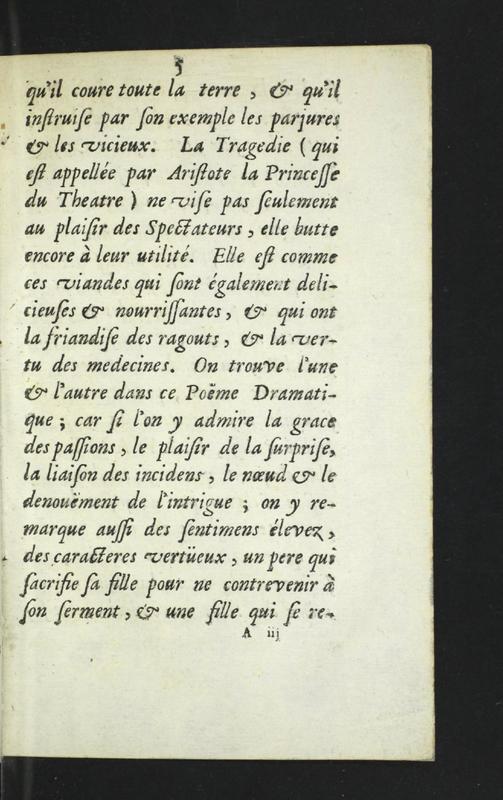 5
qu'il coure toute la terre, & qu'il
inſtruiſe par ſon exemple les parjures
& les vicieux. La Tragedie (qui
eſt appellée par Ariſtote la Princeſſe
du Theatre) ne viſe pas ſeulement
au plaiſir des Spectateurs, elle butte
encore à leur utilité. Elle eſt comme
ces viandes qui ſont également deli-
cieuſes & nourriſſantes, & qui ont
la friandiſe des ragouts, & la ver-
tu des medecines. On trouve l'une
& l'autre dans ce Poëme Dramati-
que; car ſi l'on y admire la grace
des paſſions, le plaiſir de la ſurpriſe,
la liaiſon des incidens, le nœud & le
denouëment de l'intrigue; on y re-
marque auſſi des ſentimens élevez,
des caracteres vertüeux, un pere qui
ſacrifie ſa fille pour ne contrevenir à
ſon ſerment, & une fille qui ſe re-
A iij